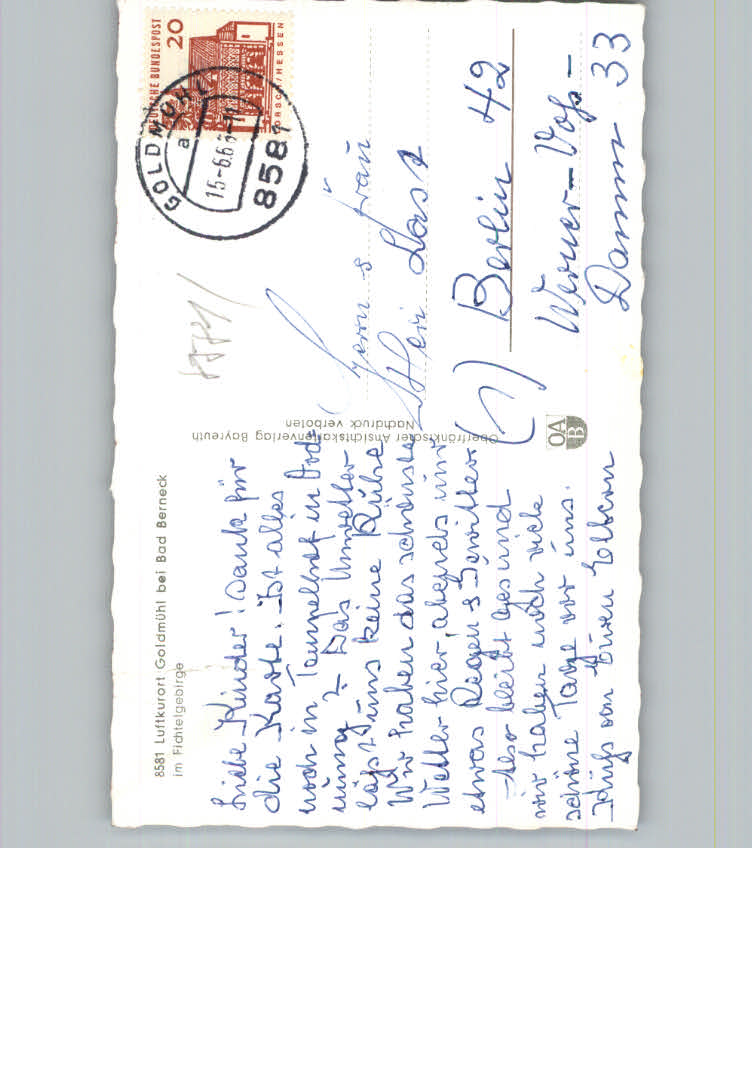 8581 Luftkurort Goldmühl bei Bad Berneck
im Fichtelgebirge
Liebe Kinder! Dank für
die Karte. Ist alles
noch in Tempelhof in Ord-
nung? Das Unwetter
läßt uns keine Ruhe
Wir haben das schönste
Wetter hier abgesehs und
etwas Regen & Gewitter.
Also bleibt gesund
wir haben noch viele
schöne Tage vor uns.
Grüß von Euren Eltern
Oberfränkischer Ansichtskartenverlag Bayreuth
Nachdruck verboten
OA
B
DEUTSCHE BUNDESPOST
20
LORSCH/HESSEN
GOLDMÜHL
a
8581
Herrn & Frau
(1) Berlin 42
Werner-Voß-
Damm 33